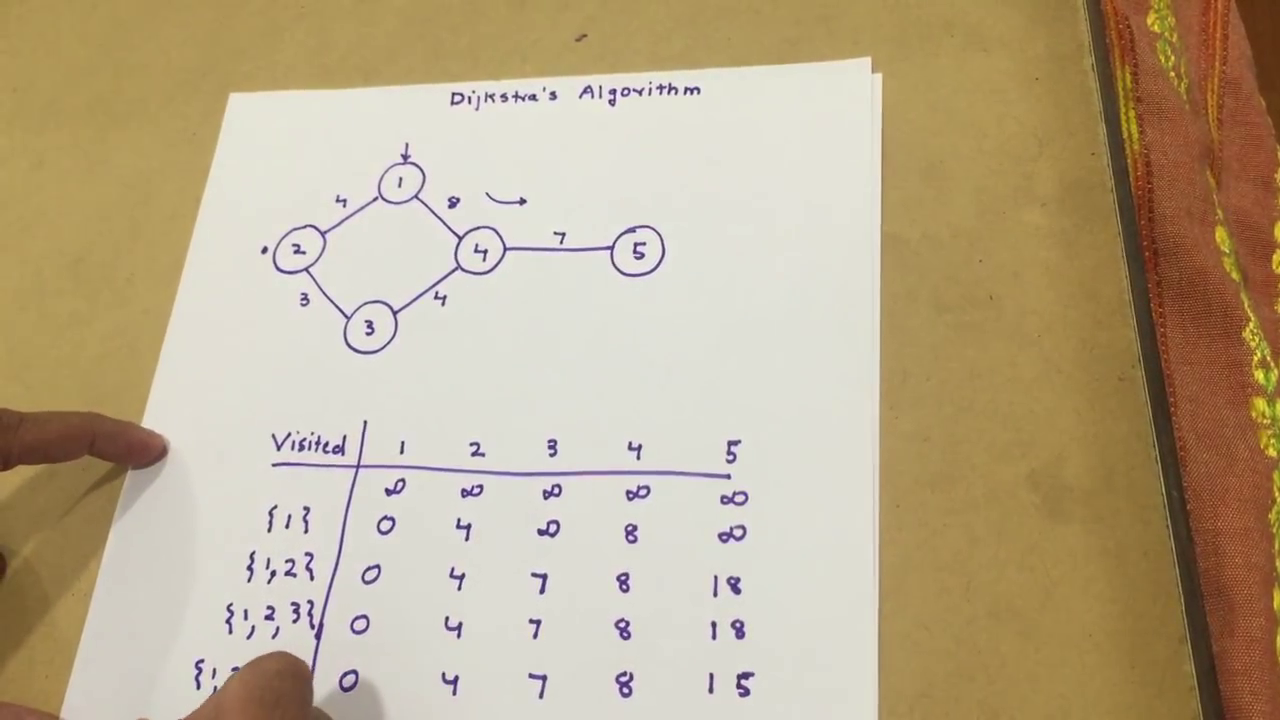 Dijkstra's Algorithm
1
4 8
2 4 7 5
3 4
3
Visited 1 2 3 4 5
∞ ∞ ∞ ∞ ∞
{1} 0 4 ∞ 8 ∞
{1,2} 0 4 7 8 18
{1,2,3} 0 4 7 8 18
{1, 0 4 7 8 15